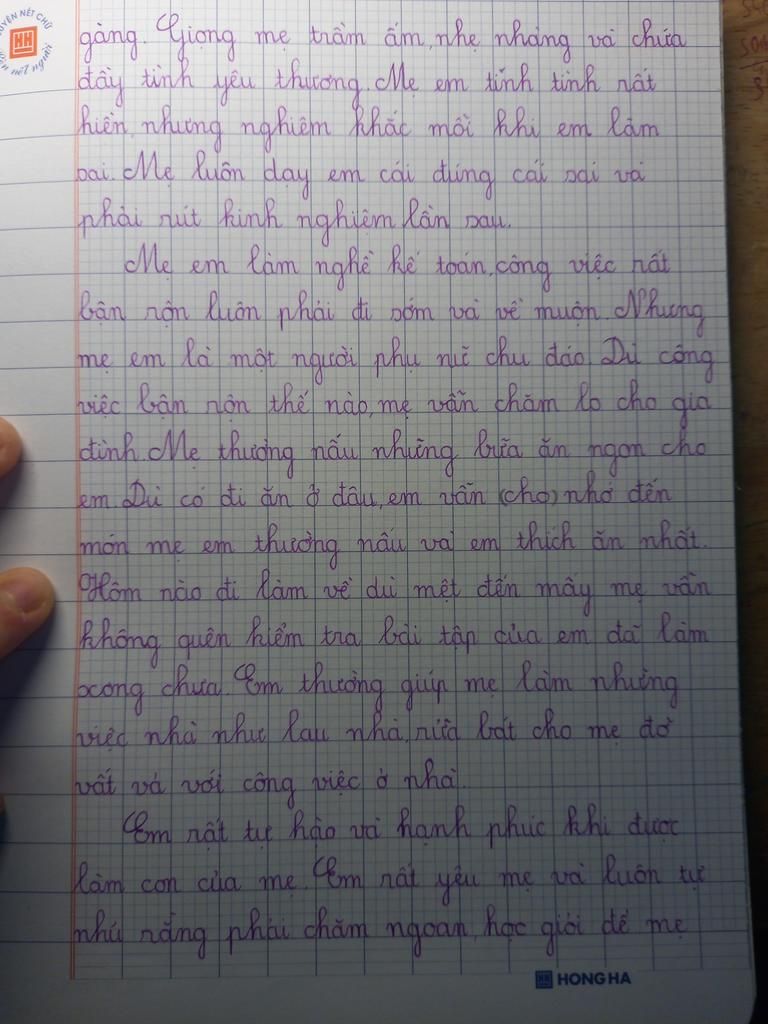 LUYỆN NÉT CHỮ
HH
rèn nết người
gàng. Giọng mẹ trầm ấm, nhẹ nhàng và chứa
đầy tình yêu thương. Mẹ em tính tình rất
hiền, nhưng nghiêm khắc mỗi khi em làm
sai. Mẹ luôn dạy em cái đúng cái sai và
phải rút kinh nghiệm lần sau.
Mẹ em làm nghề kế toán, công việc rất
bận rộn luôn phải đi sớm và về muộn. Nhưng
mẹ em là một người phụ nữ chu đáo. Dù công
việc bận rộn thế nào, mẹ vẫn chăm lo cho gia
đình. Mẹ thường nấu những bữa ăn ngon cho
em. Dù có đi ăn ở đâu, em vẫn (cho) nhớ đến
món mẹ em thường nấu và em thích ăn nhất.
Hôm nào đi làm về dù mệt đến mấy mẹ vẫn
không quên kiểm tra bài tập của em đã làm
xong chưa. Em thường giúp mẹ làm những
việc nhà như lau nhà, rửa bát cho mẹ đỡ
vất vả với công việc ở nhà.
Em rất tự hào và hạnh phúc khi được
làm con của mẹ. Em rất yêu mẹ và luôn tự
nhủ rằng phải chăm ngoan, học giỏi để mẹ
HH HONG HA